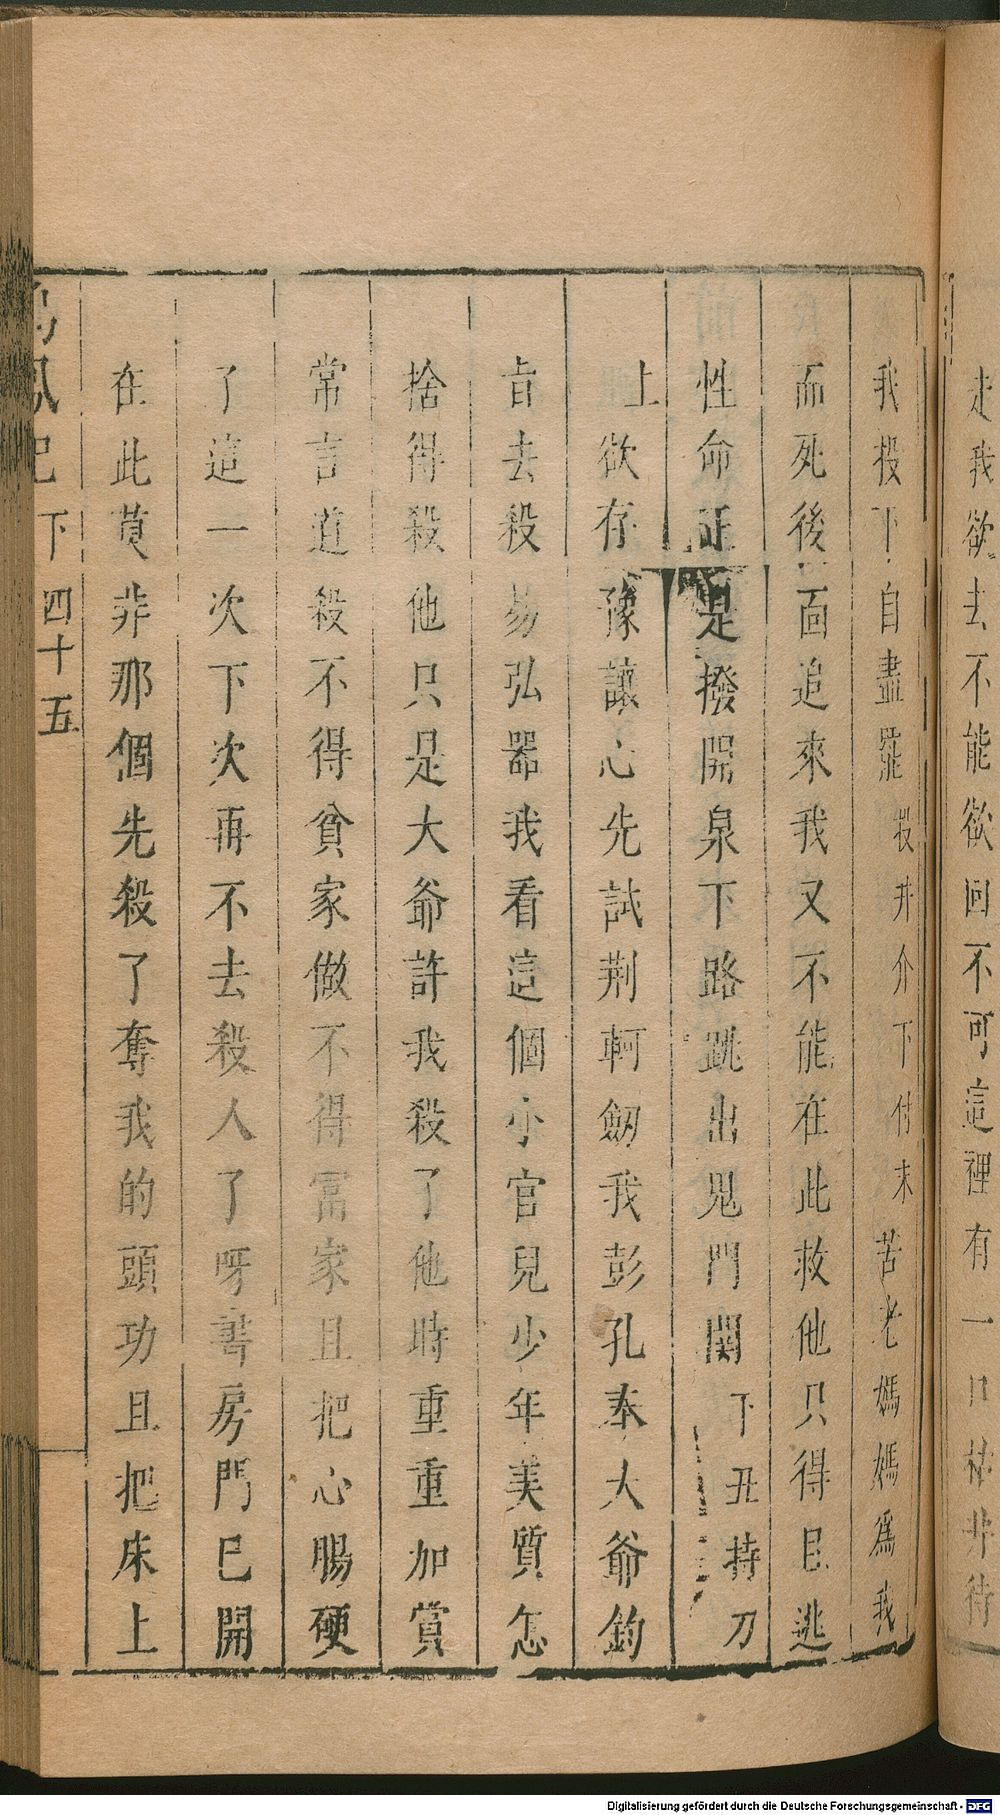 走我欲去不能欲回不可這裡有一口枯井待
我投下自盡罷投井介下付末苦老媽媽爲我
而死後面追來我又不能在此救他只得且逃
性命正是撥開泉下路跳出鬼門関下丑持刀
上欲存豫讓心先試荆軻劒我彭孔奉大爺鈞
旨去殺易弘器我看這個小官兒少年美質怎
捨得殺他只是大爺許我殺了他時重重加賞
常言道殺不得貧家做不得富家且把心腸硬
了這一次下次再不去殺人了呀書房門已開
在此莫非那個先殺了奪我的頭功且把床上
鳳記下 四十五
Digitalisierung gefördert durch die Deutsche Forschungsgemeinschaft - DFG